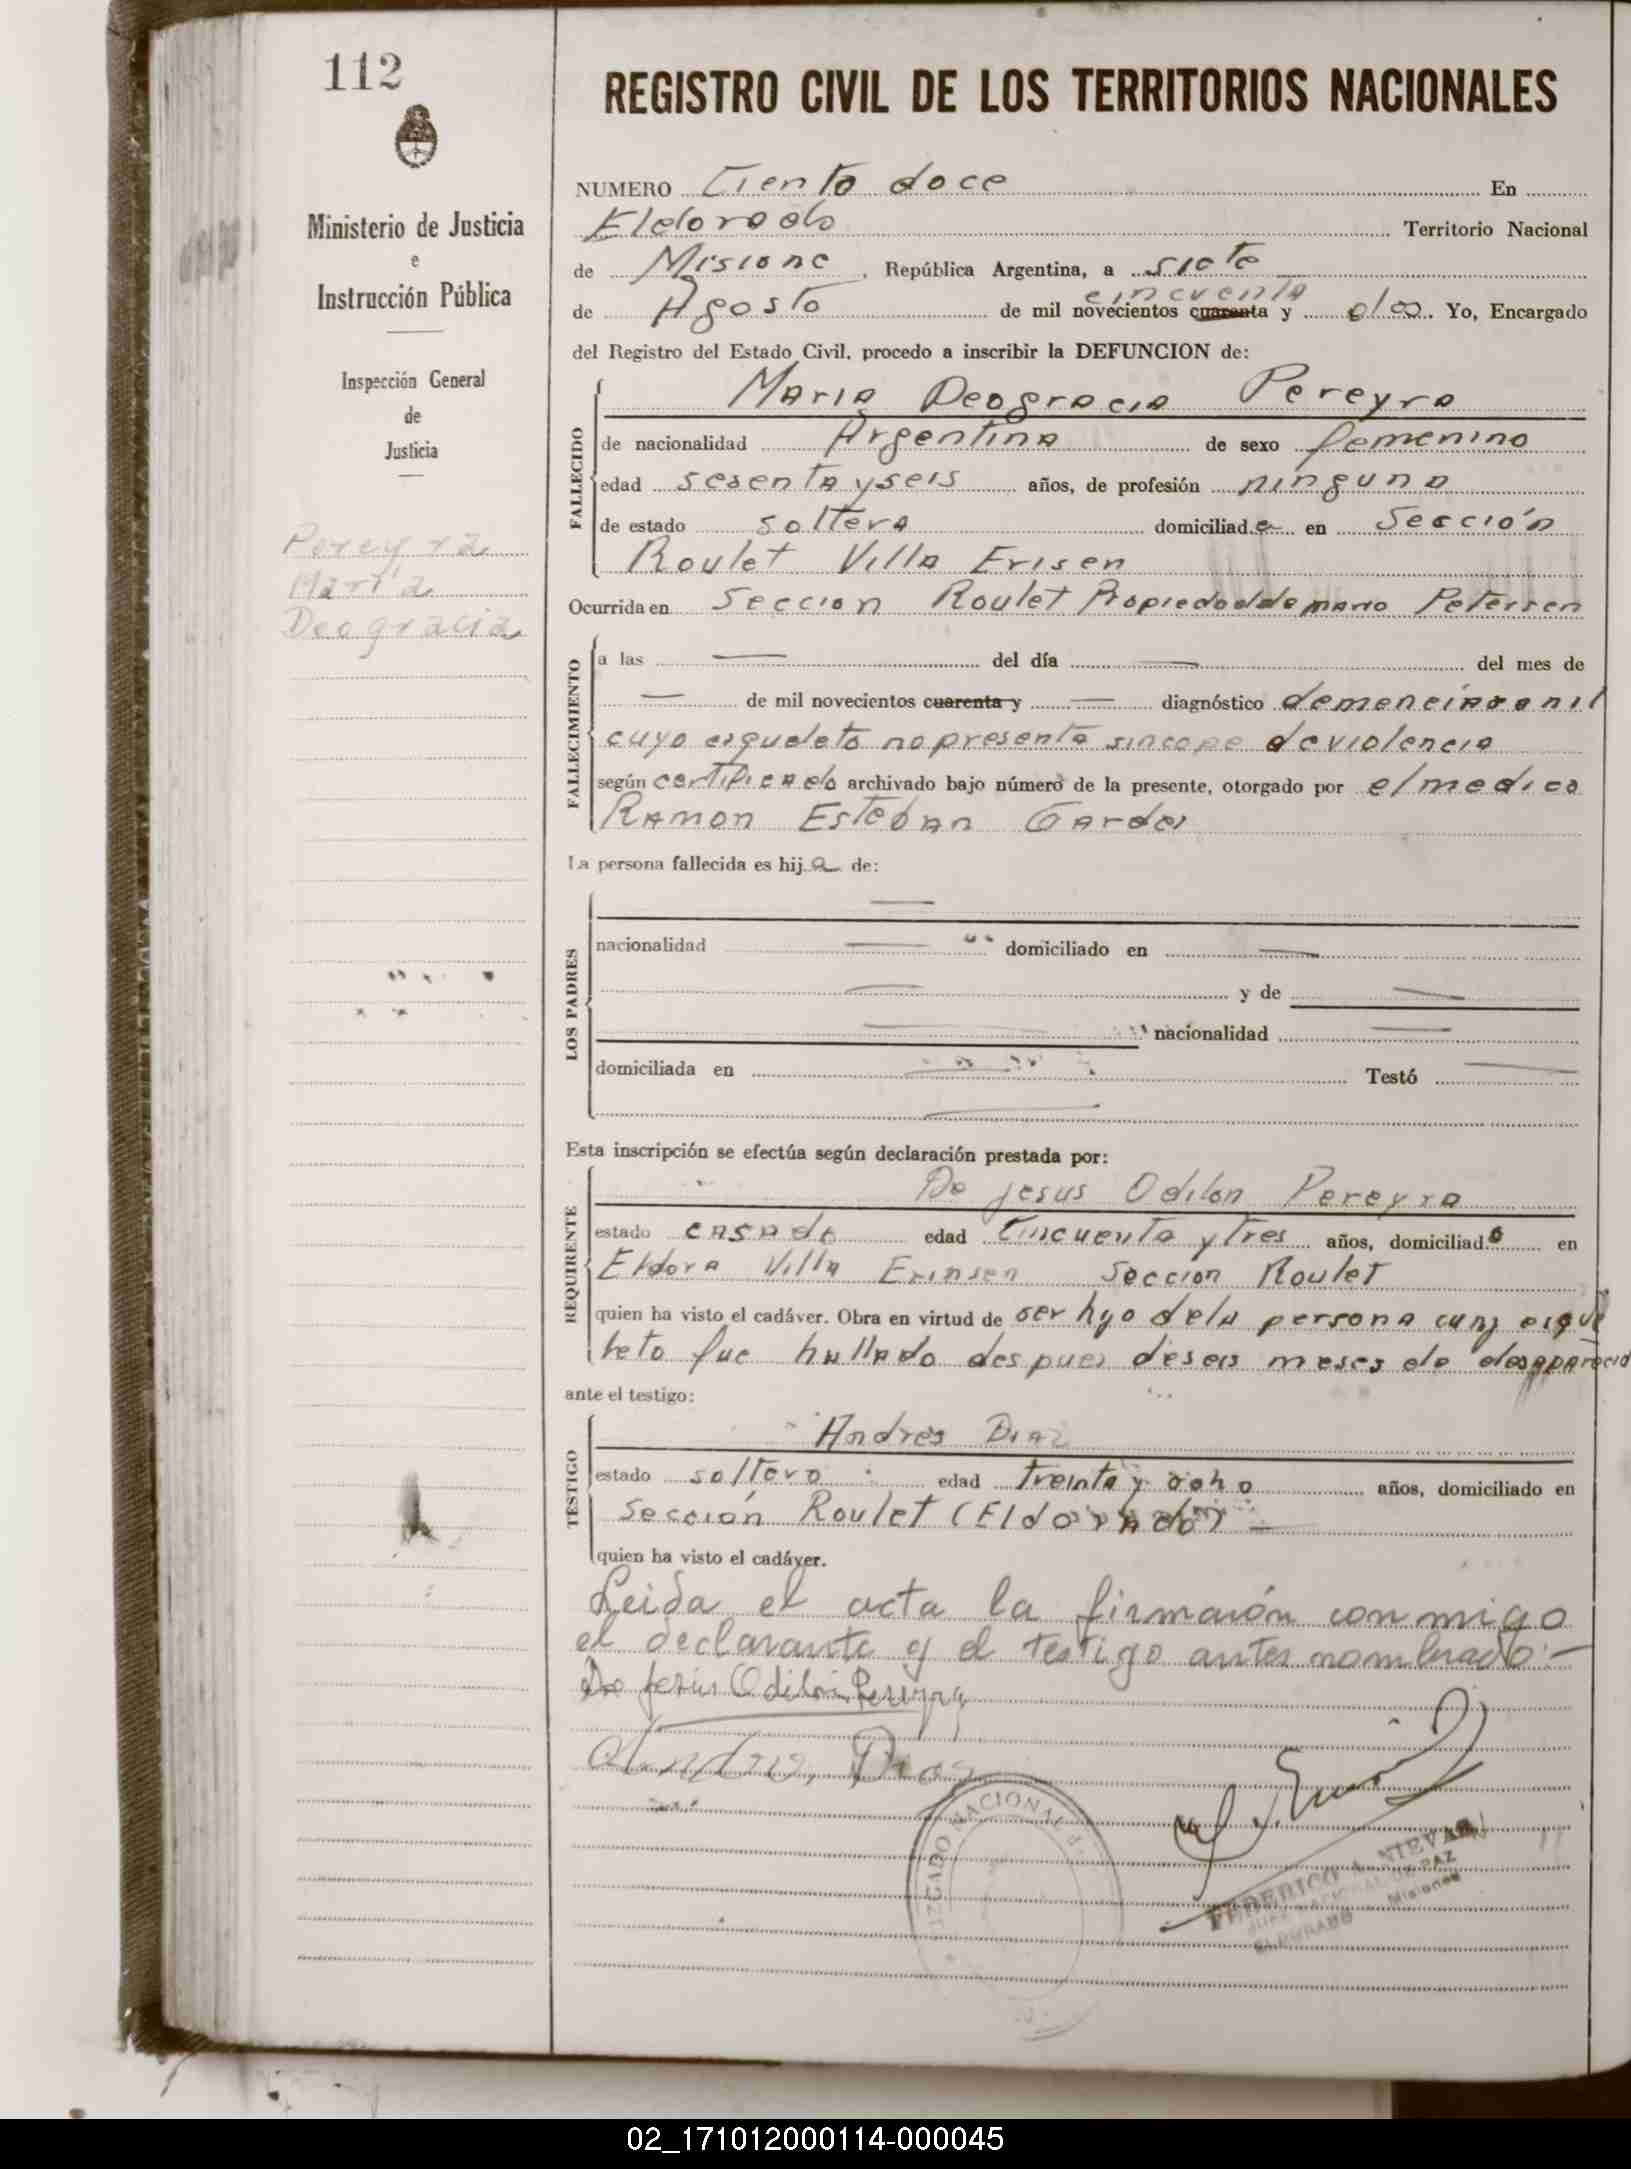 112
Ministerio de Justicia
e
Instrucción Pública
Inspección General
de
Justicia
Pereyra
María
Deogracia
REGISTRO CIVIL DE LOS TERRITORIOS NACIONALES
NUMERO Ciento doce En
Eldorado Territorio Nacional
de Misione, República Argentina, a siete
cincuenta
de Agosto de mil novecientos cuarenta y dos. Yo, Encargado
del Registro del Estado Civil, procedo a inscribir la DEFUNCION de:
FALLECIDO
Maria Deogracia Pereyra
de nacionalidad Argentina de sexo femenino
edad sesenta y seis años, de profesión ninguna
de estado soltera domiciliada en Sección
Roulet Villa Erisen
Ocurrida en Seccion Roulet Propiedad de mario Petersen
FALLECIMIENTO
a las — del día — del mes de
— de mil novecientos cuarenta y — diagnóstico demencia senil
cuyo esqueleto no presenta sincope de violencia
según certificado archivado bajo número de la presente, otorgado por el medico
Ramon Esteban Gardes
La persona fallecida es hija de:
LOS PADRES
—
nacionalidad — domiciliado en —
— y de —
— nacionalidad —
domiciliada en — Testó —
—
Esta inscripción se efectúa según declaración prestada por:
REQUIRENTE
De jesus Odilon Pereyra
estado casado edad Cincuenta y tres años, domiciliado en
Eldora Villa Erinsen Seccion Roulet
quien ha visto el cadáver. Obra en virtud de ser hijo de la persona cuyo esque
leto fue hallado despues de seis meses de desaparecid
ante el testigo:
TESTIGO
Andres Diaz
estado soltero edad treinta y ocho años, domiciliado en
Sección Roulet (Eldorado) —
quien ha visto el cadáver.
Leida el acta la firmarón conmigo
el declarante y el testigo antes nombrado.—
De Jesus Odilon Pereyra
Andres Diaz
JUZGADO NACIONAL
FEDERICO A. NIEVAS
JUEZ NACIONAL DE PAZ
ELDORADO Misiones
02_171012000114-000045